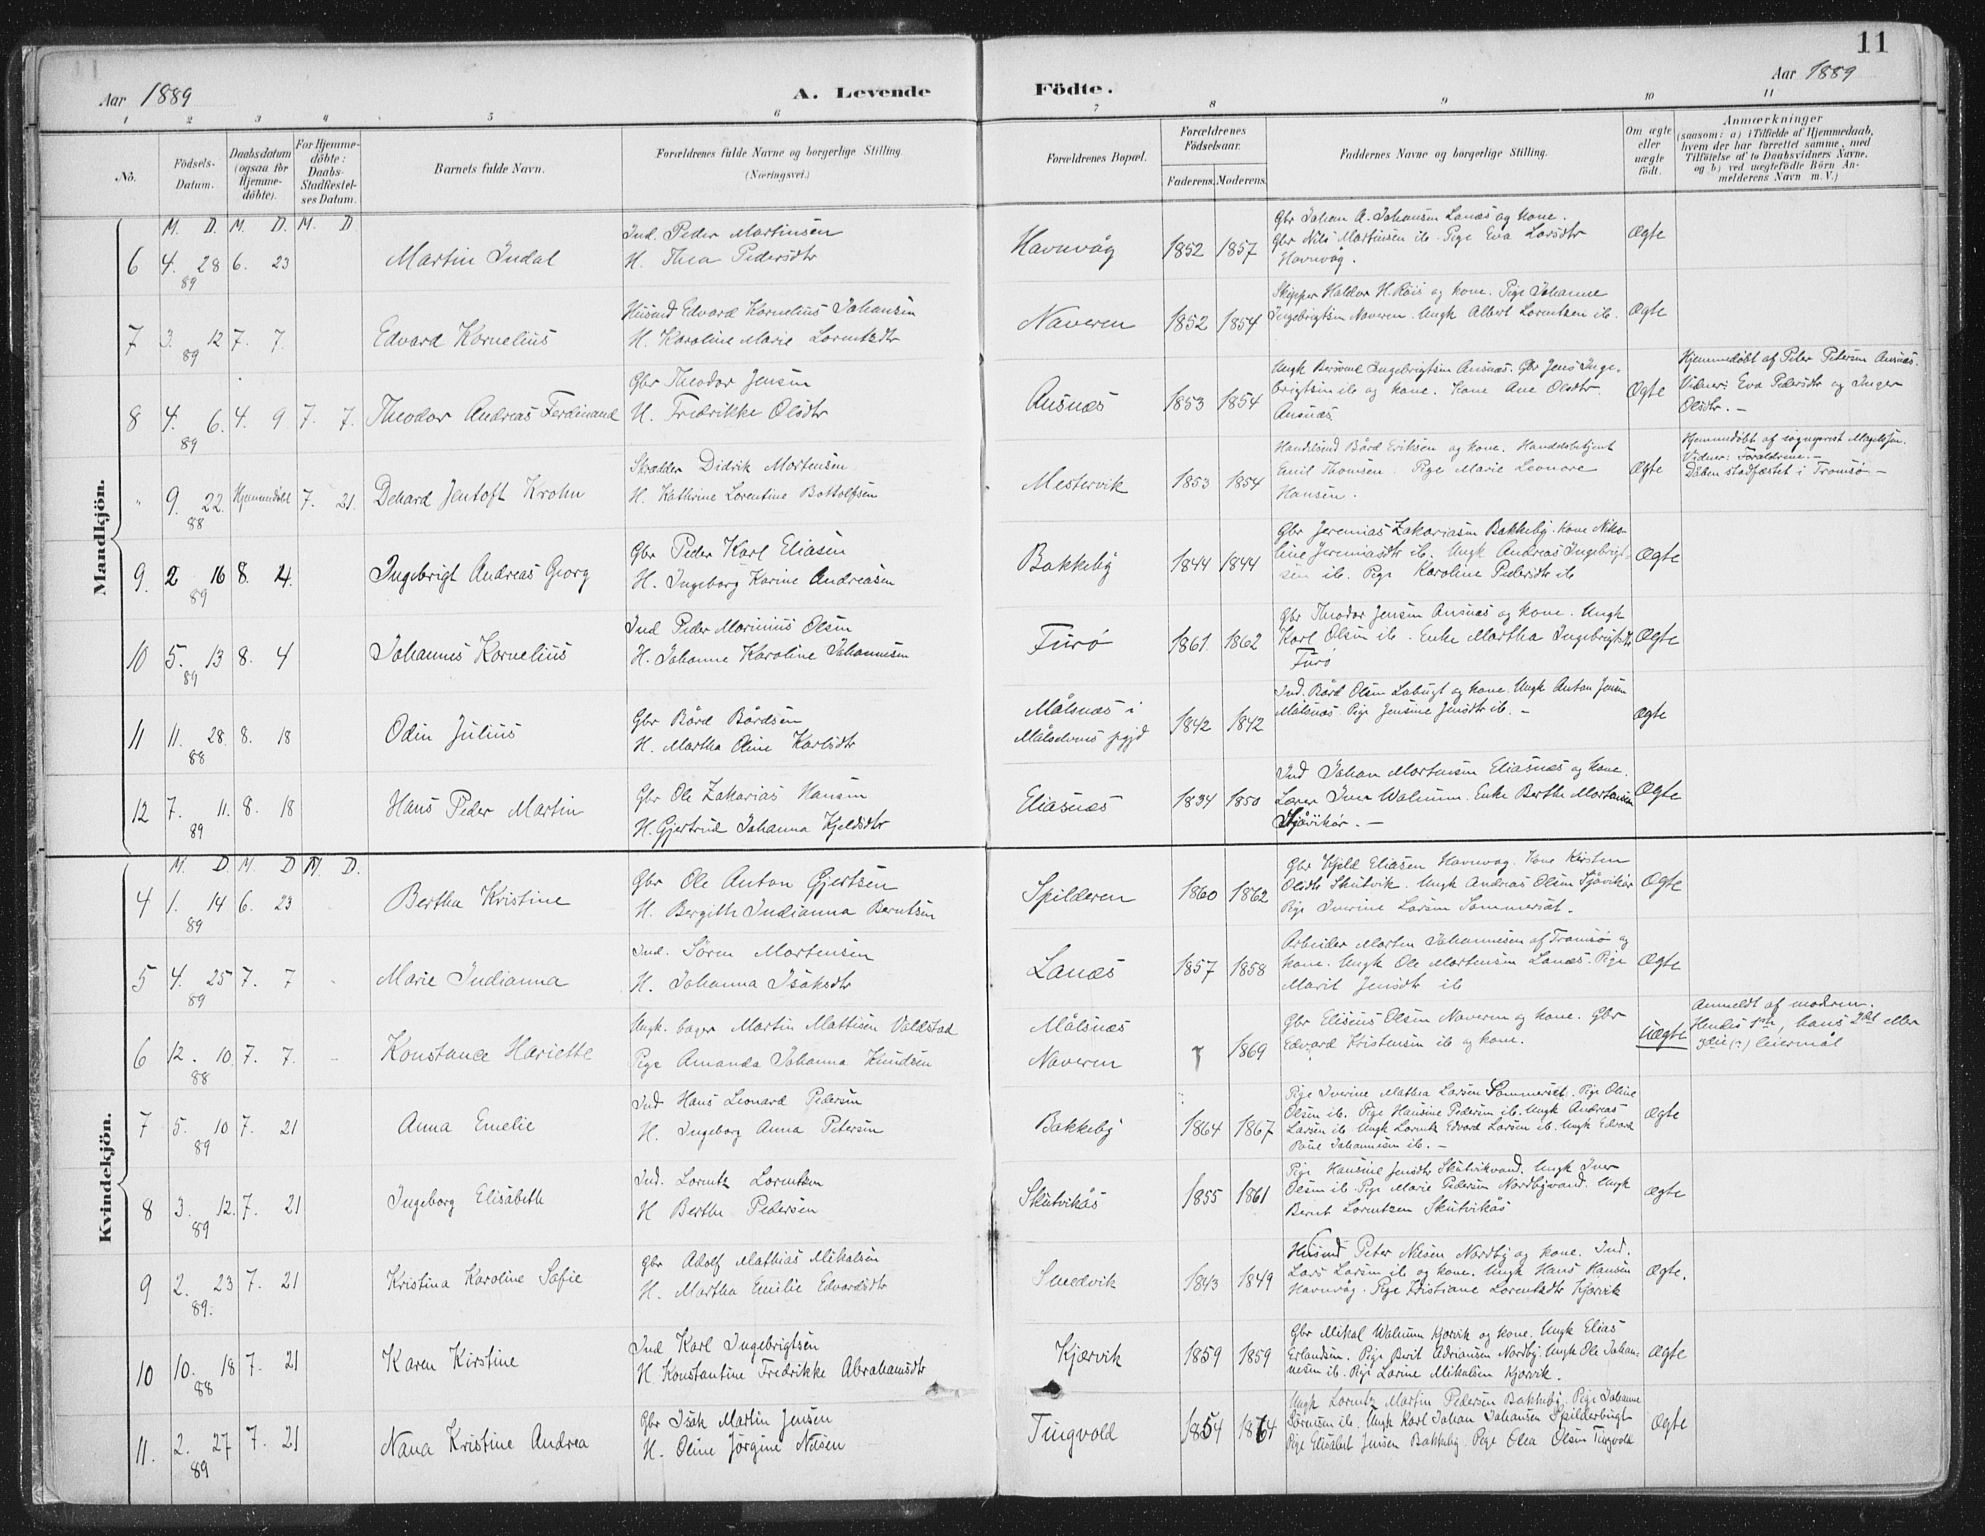 11
Aar 1889 A. Levende Födte. Aar 1889
1 2 3 4 5 6 7 8 9 10 11
No. Födsels-Datum. Daabsdatum (ogsaa for Hjemme-döbte). For Hjemme-döbte: Daabs-Stadfæstel-ses Datum. Barnets fulde Navn. Forældrenes fulde Navne og borgerlige Stilling. (Næringsvei.) Forældrenes Bopæl. Forældrenes Födselsaar. Faderens. Moderens. Faddernes Navne og borgerlige Stilling. Om ægte eller uægte födt. Anmærkninger (saasom: a) i Tilfælde af Hjemmedaab, hvem der har forrettet samme, med Tilföielse af to Daabsvidners Navne, og b) ved uægtefödte Börn An-melderens Navn m. V.)
Mandkjön.
M. D. M. D. M. D.
Ind. Peder Martinsen
6 4. 28 89 6. 23 Martin Indal
H. Thea Pedersdtr
Havnvåg 1852 1857
Gbr Johan A. Johansen Lanæs og kone.
Gbr Nils Martinsen ib. Pige Eva Larsdtr
Havnvåg.
Ægte
Husmd Edvard Kornelius Johansen
7 3. 12 89 7. 7. Edvard Kornelius
H. Karoline Marie Lorentsdtr
Naveren 1852 1854
Skipper Haldor H. Röis og kone. Pige Johanne
Ingebrigtsen Naveren. Ungk Albert Lorentsen ib.
Ægte
Gbr Theodor Jensen
8 4. 6. 89 4. 9 7. 7. Theodor Andreas Ferdinand
H. Fredrikke Olsdtr
Ansnæs 1853 1854
Ungk Ingebrigtsen Ansnæs. Gbr Jens Inge-
brigtsen ib og kone. Kone Ane Olsdtr.
Ansnæs
Ægte
Hjemmedöbt af Peter Petersen Ansnæs.
Vidner: Eva Pedersdtr og Inger
Olsdtr. —
Skrædder Didrik Mortensen
" 9. 22. 88 Hjemmedöbt 7. 21. Dehard Jentoft Krohn
H. Kathrine Lorentine Bottolfsen
Mestervik 1853 1854
Handelsmd Bård Eriksen og kone. Handelsbetjent
Emil Thomsen. Pige Marie Leonore
Hansen.
Ægte
Hjemmedöbt af sogneprest Magelsen.
Vidner: Forældrene. —
Dåben stadfæstet i Tromsö —
Gbr Peder Karl Eliasen
9. 2 16 89 8. 4. Ingebrigt Andreas Georg
H. Ingeborg Karine Andreasen
Bakkeby 1844 1844
Gbr Jeremias Zakariasen Bakkeby. Kone Niko-
line Jeremiasdtr ib. Ungk Andreas Ingebrigt-
sen ib. Pige Karoline Pedersdtr ib
Ægte
Ind Peder Marinius Olsen
10 5. 13 89 8. 4 Johannes Kornelius
H. Johanne Karoline Johannesen
Furö 1861. 1862
Gbr Theodor Jensen Ansnæs og kone. Ungk
Karl Olsen ib. Enke Martha Ingebrigtsdtr
Furö
Ægte
Gbr Bård Bårdsen
11 11. 28. 88 8. 18 Odin Julius
H. Martha Oline Karlsdtr
Målsnæs i
Målselvens pgjd
1842 1842
Ind. Bård Olsen Labugt og kone. Ungk Anton Jensen
Målsnæs. Pige Jensine Jensdtr ib. —
Ægte
Gbr Ole Zakarias Hansen
12 7. 11. 89 8. 18 Hans Peder Martin
H. Gjertrud Johanna Kjeldsdtr
Eliasnæs 1834 1850
Ind Johan Mortensen Eliasnæs og kone.
Lærer Iver Walnum. Enke Berthe Mortensen
Sjåvikör. —
Ægte
Kvindekjön.
M. D. M. D M. D.
Gbr Ole Anton Gjertsen
4 1. 14 89 6. 23 Bertha Kristine
H. Bergith Indianna Berntsen
Spilderen 1860 1862
Gbr Kjeld Eliasen Havnvåg. Kone Kirsten
Olsdtr Skutvik. Ungk Andreas Olsen Sjåvikör
Pige Iverine Larsen Sommersæt.
Ægte
Ind. Sören Mortensen
5 4. 25 89 7. 7 Marie Indianna
H. Johanna Isaksdtr
Lanæs 1857 1858
Arbeider Morten Johannesen af Tromsö og
kone. Ungk Ole Mortensen Lanæs. Pige
Marit Jensdtr ib
Ægte
Ungk. bager Martin Mattisen Valdstad
6 12. 10. 88 7. 7. Konstance Hariette
Pige Amanda Johanna Knudsen
Målsnæs
Naveren
? 1869
Gbr Eliseus Olsen Naveren og kone. Gbr
Edvard Kristensen ib og kone.
Uægte
Anmeldt af modren.
Hendes 1ste, hans 2det eller
3die (?) leiermål
Ind Hans Leonard Pedersen
7 5. 10 89 7. 21 Anna Emelie
H. Ingeborg Anna Petersen
Bakkeby 1864 1867
Pige Iverine Mathea Larsen Sommersæt. Pige Oline
Olsen ib. Pige Hansine Pedersen ib. Ungk Andreas
Larsen ib. Ungk Lorentz Edvard Larsen ib. Ungk Edvard
Johannesen ib. —
Ægte
Ind. Lorentz Lorentzen
8 3. 12. 89 7. 21 Ingeborg Elisabeth
H Berthe Pedersen
Skutvikås 1855 1861
Pige Hansine Jensdtr Skutvikvand. Ungk Iver
Olsen ib. Pige Marie Pedersen Nordbyvand. Ungk
Bernt Lorentzen Skutvikås
Ægte
Gbr Adolf Mathias Mikalsen
9 2. 23 89. 7. 21 Kristina Karoline Sofie
H. Martha Emilie Edvardsdtr
Smedvik 1843 1849
Husmd Peter Nilsen Nordby og kone. Ind.
Lars Larsen ib og kone. Ungk Hans Hansen
Havnvåg. Pige Kristiane Lorentsdtr Kjærvik
Ægte.
Ind Karl Ingebrigtsen
10 10. 18 88 7. 21 Karen Kirstine
H. Konstantine Fredrikke Abrahamsdtr
Kjærvik 1859 1859
Gbr Mikal Walnum Kjærvik og kone. Ungk Elias
Erlandsen. Pige Berit Adriansen Nordby. Ungk Ole Johan-
nesen ib. Pige Larine Mikalsen Kjærvik.
Ægte
Gbr Isak Martin Jensen
11. 2. 27 89 7. 21 Nana Kristine Andrea
H. Oline Jörgine Nilsen
Tingvold 1854 1864
Ungk Lorentz Martin Pedersen Bakkeby. Pige Johanne
Sörensen ib. Ungk Karl Johan Johansen Spilderbugt
Pige Elisabet Jensen Bakkeby. Pige Olea Olsen Tingvold
Ægte